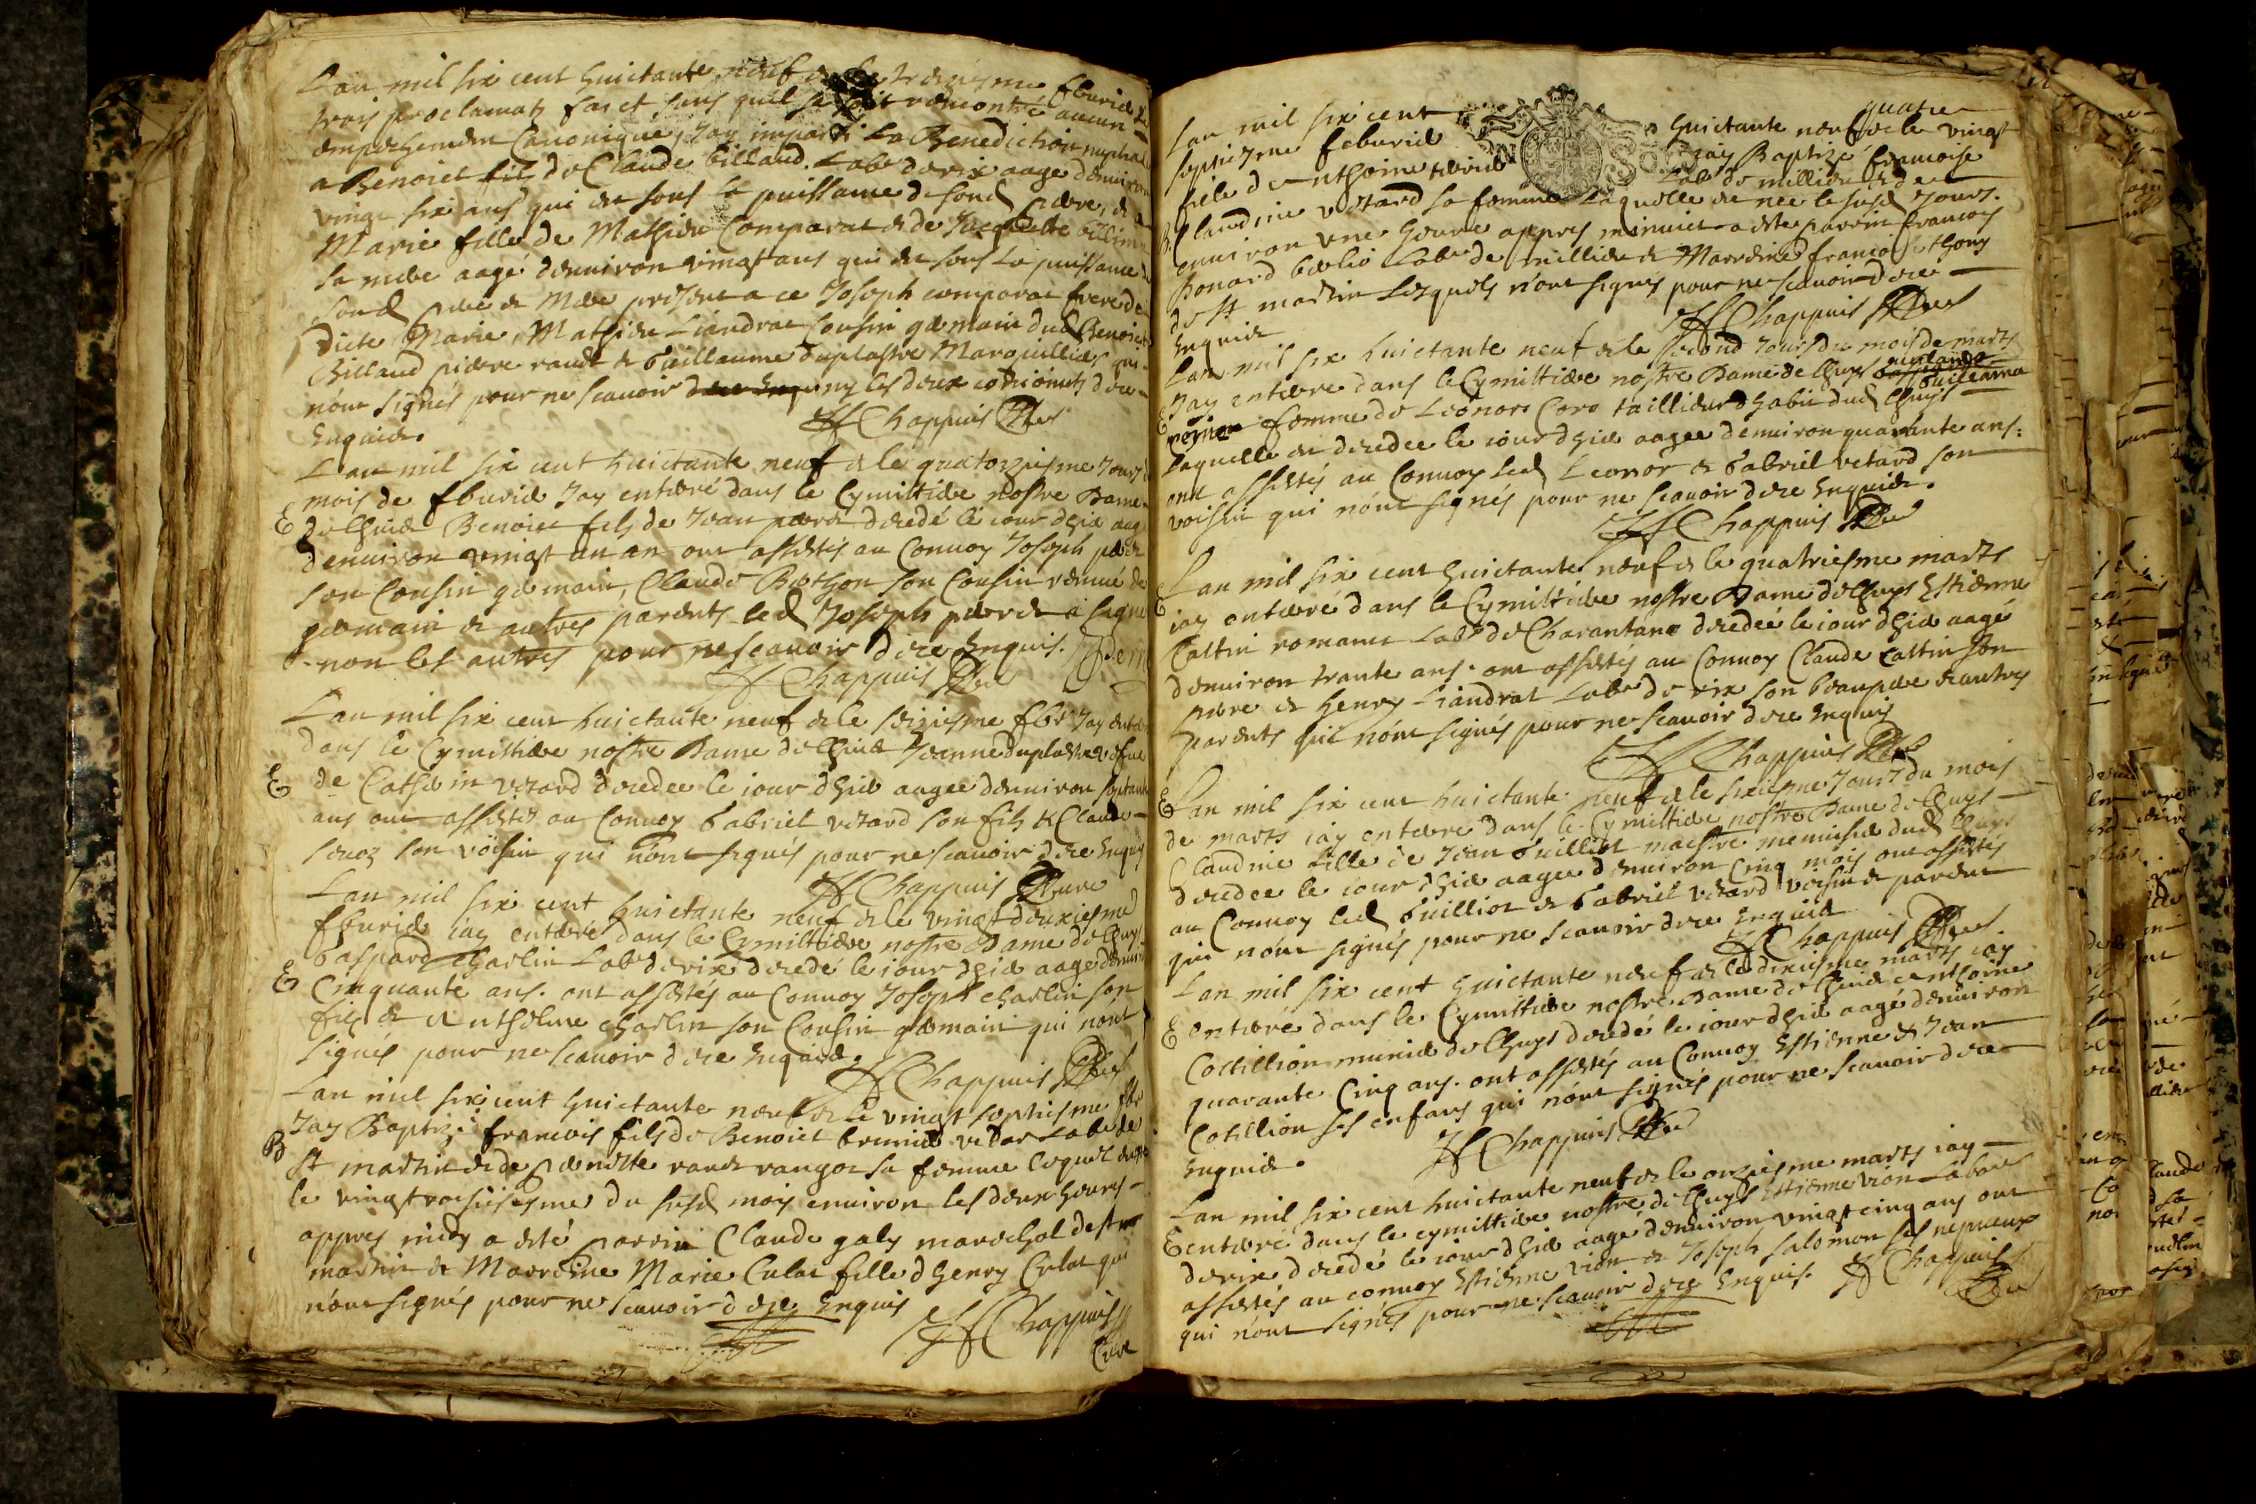 L'an mil six cent huictante neuf & le treiziesme febvrier
trois proclamats fai et sans quil se soit rencontré aucun
empeschement Canonique, Jay imparti La Benediction nuptiale
a Benoiet fils de Claude billaud Labr de rix aage denviron
vingt six ans qui est sous la puissance de sond pere, & a
Marie fille de Mathieu Comparat & de Jacquette
sa mere aagé denuiron vingt ans qui est sous la puissance de
sond pere & Mere present a ce Joseph comparat frere de
dicte Marie, Mathieu Liandrat Cousin germain dud Benoiet
Billaud pierre raudt & Guillaume duplastre Marguillier qui
nont signés pour ne scauoir les deux coniointz dece
Enquis.
JJ Chappuis
L'an mil six cent huictante neuf & le quatorziesme Jour du
mois de febvrier Jay enterré dans le Cymittiere nostre Dame
E de Chuis Benoiet fils de Jean decedé le iour dhier aagé
denuiron vingt un an ont assistés au Conuoy Joseph
son Cousin germain, Claude Berthon son Cousin remué de
germain & autres parents led Joseph a signé
non les autres pour ne scauoir dece Enquis.
JJ Chappuis
L'an mil six cent huictante neuf & le seiziesme febr Jay enterré
dans le Cymittiere nostre Dame de Chuis Jeanne duplastre vefue
E de Catherin vetard decedee le iour dhier aagee denuiron septante
ans ont assistés au Conuoy Gabriel vetard son fils & Claude
son voisin qui nont signés pour ne scauoir dece Enquis
JJ Chappuis Cure
L'an mil six cent huictante neuf & le vingt deuxiesme
febvrier iay enterré dans le Cymittiere nostre Dame de Chuys
Gaspard Charlin Labr de rix decedé le iour dhier aagé denuiron
E Cinquante ans. ont assistés au Conuoy Joseph Charlin son
fils & Anthelme Charlin son Cousin germain qui nont
signés pour ne scauoir dece Enquis.
JJ Chappuis
L'an mil six cent huictante neuf & le vingt septiesme febr
B Jay Baptizé francois fils de Benoiet Labr de
St martin & de pernette sa femme lequel
le vingt troisiesme du susd mois enuiron les deux heures
appres midy a esté parrin Claude galy mareschal de St
martin & Marreine Marie Culat fille dhenry Culat qui
nont signés pour ne scauoir dece Enquis
JJ Chappuis
Cure
quatre
L'an mil six cent huictante neuf & le vingt
septiesme febvrier iay Baptizé francoise
fille d'Anthoine Labr de millieu & de
B Claudine vetard sa femme laquelle est née le susd Jour.
enuiron une heure appres minuict a esté parrin francois
Labr de millieu & Marreine francoise Anthony
de St martin Lesquels nont signés pour ne scauoir dece
Enquis
JJ Chappuis
L'an mil six huictante neuf & le second Jour du mois de marts
E Jay enterre dans le Cymittiere nostre Dame de Chuys Guillerma
femme de Leonor Coro tailleur habit dud Chuys
laquelle est decedee le iour dhier aagee denuiron quarante ans:
ont assistés au Conuoy led Leonor & Gabriel vetard son
voisin qui nont signés pour ne scauoir dece Enquis.
JJ Chappuis
E L'an mil six cent huictante neuf & le quatriesme marts
iay enterré dans le Cymittiere nostre Dame de Chuys Estienne
Cattin romanet Labr de Charantane decedeé le iour dhier aagé
denuiron trante ans. ont assistés au Conuoy Claude Cattin son
pere & henry Liandrat Labr de rix son beaupere & autres
parents qui nont signés pour ne scauoir dece Enquis
JJ Chappuis
E L'an mil six cent huictante neuf & le sixiesme Jour du mois
de marts iay enterre dans le Cymittiere nostre Dame de Chuys
Claudine fille de Jean Guilliot maistre menuisier dud Chuys
decedee le iour dhier aagee denuiron Cinq mois ont assistés
au Conuoy led Guilliot & Gabriel vetard voisin & parent
qui nont signés pour ne scauoir dece Enquis
JJ Chappuis
L'an mil six cent huictante neuf & le dixiesme marts iay
E enterré dans le Cymittiere nostre Dame de Chuis Anthoine
Cottillion munier de Chuys decedé le iour dhier aagé denuiron
quarante Cinq ans. ont assistés au Conuoy Estienne & Jean
Cotillion ses enfans qui nont signés pour ne scauoir dece
Enquis.
JJ Chappuis
L'an mil six cent huictante neuf & le onziesme marts iay
E enterré dans le cymittiere nostre de Chuys Estienne vion Labour
de rix decedé le iour dhier aagé denuiron vingt cinq ans ont
assistés au conuoy Estienne vion & Joseph salomon ses nepueux
qui nont signés pour ne scauoir dece Enquis.
JJ Chappuis